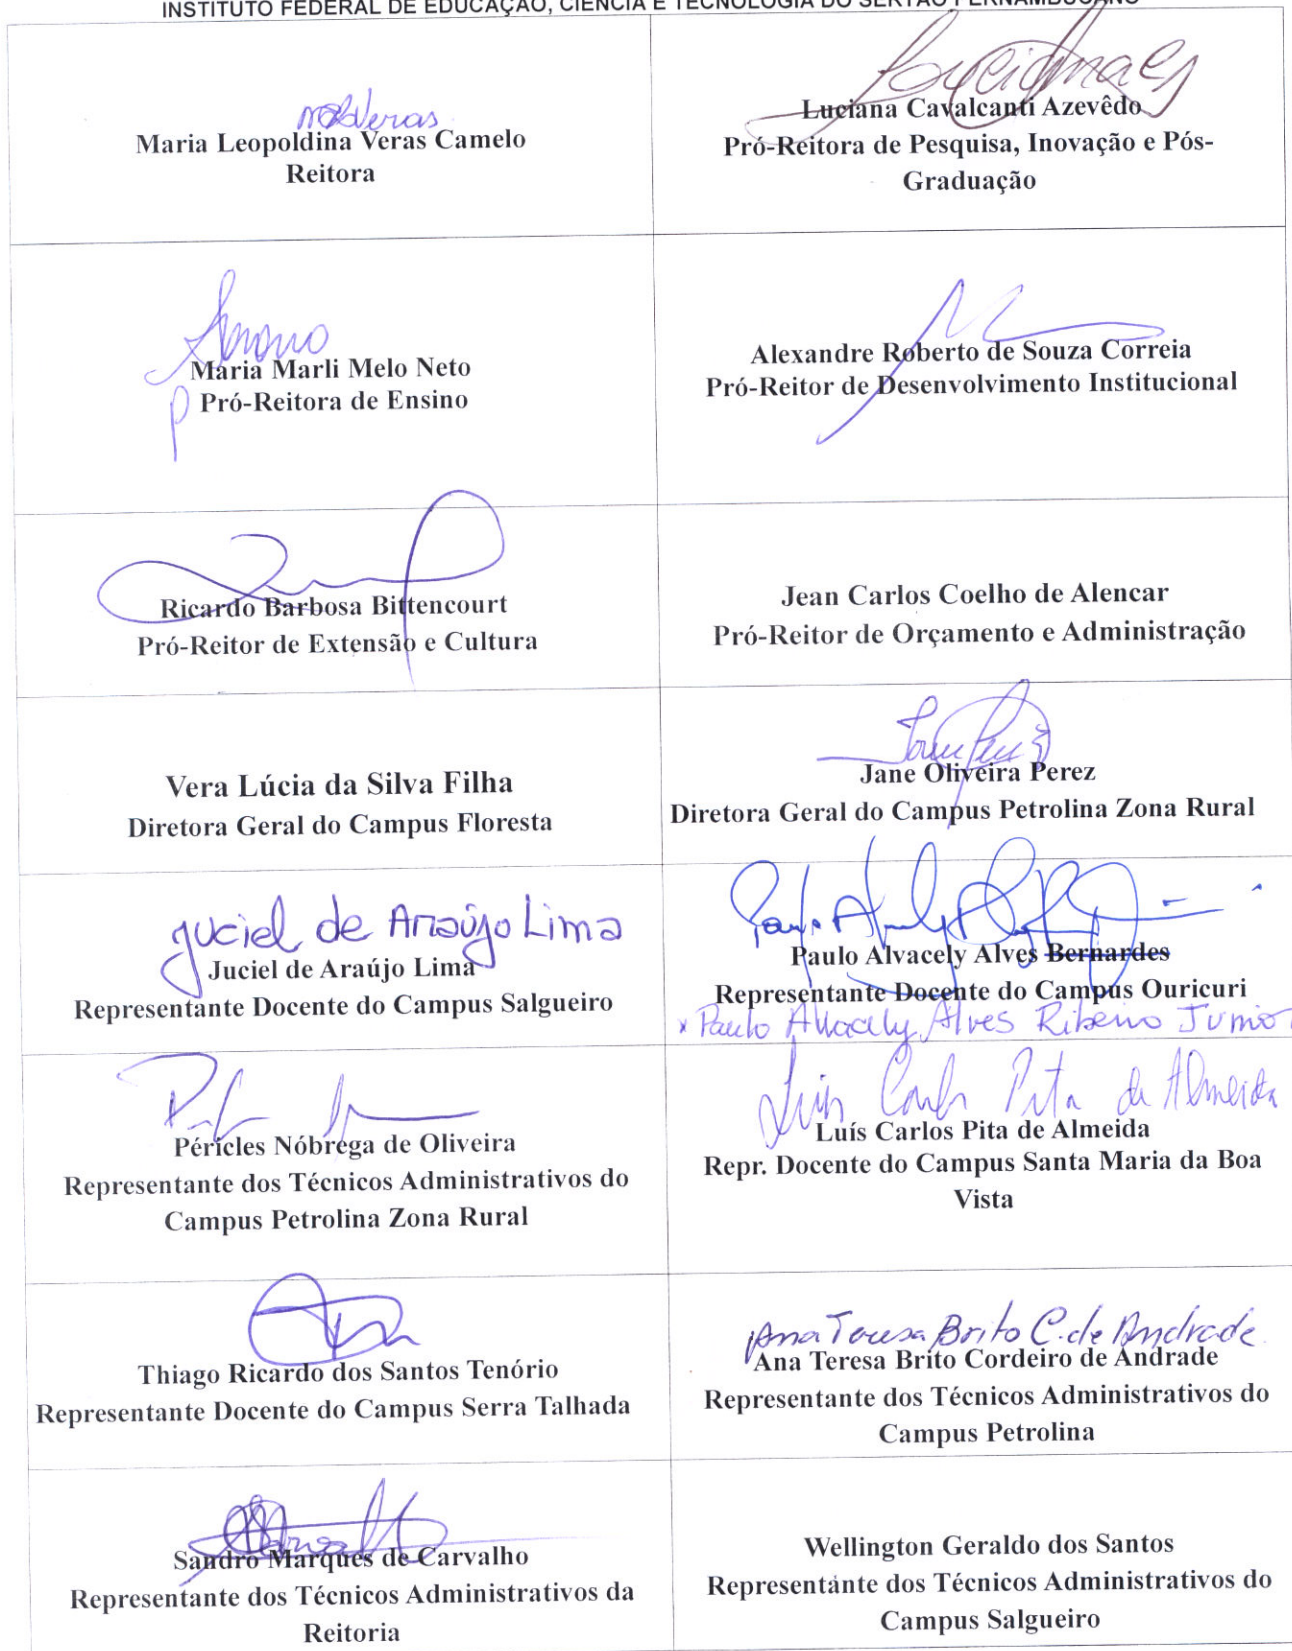 INSTITUTO FEDERAL DE EDUCAÇÃO, CIÊNCIA E TECNOLOGIA DO SERTÃO PERNAMBUCANO
Maria Leopoldina Veras Camelo
Reitora
Luciana Cavalcanti Azevêdo
Pró-Reitora de Pesquisa, Inovação e Pós-
Graduação
Maria Marli Melo Neto
Pró-Reitora de Ensino
Alexandre Roberto de Souza Correia
Pró-Reitor de Desenvolvimento Institucional
Ricardo Barbosa Bittencourt
Pró-Reitor de Extensão e Cultura
Jean Carlos Coelho de Alencar
Pró-Reitor de Orçamento e Administração
Vera Lúcia da Silva Filha
Diretora Geral do Campus Floresta
Jane Oliveira Perez
Diretora Geral do Campus Petrolina Zona Rural
Juciel de Araújo Lima
Juciel de Araújo Lima
Representante Docente do Campus Salgueiro
Paulo Alvacely Alves Bernardes
Representante Docente do Campus Ouricuri
x Paulo Alvacely Alves Ribeiro Junior
Péricles Nóbrega de Oliveira
Representante dos Técnicos Administrativos do
Campus Petrolina Zona Rural
Luis Carlos Pita de Almeida
Luís Carlos Pita de Almeida
Repr. Docente do Campus Santa Maria da Boa
Vista
Thiago Ricardo dos Santos Tenório
Representante Docente do Campus Serra Talhada
Ana Teresa Brito C. de Andrade
Ana Teresa Brito Cordeiro de Andrade
Representante dos Técnicos Administrativos do
Campus Petrolina
Sandro Marques de Carvalho
Representante dos Técnicos Administrativos da
Reitoria
Wellington Geraldo dos Santos
Representante dos Técnicos Administrativos do
Campus Salgueiro